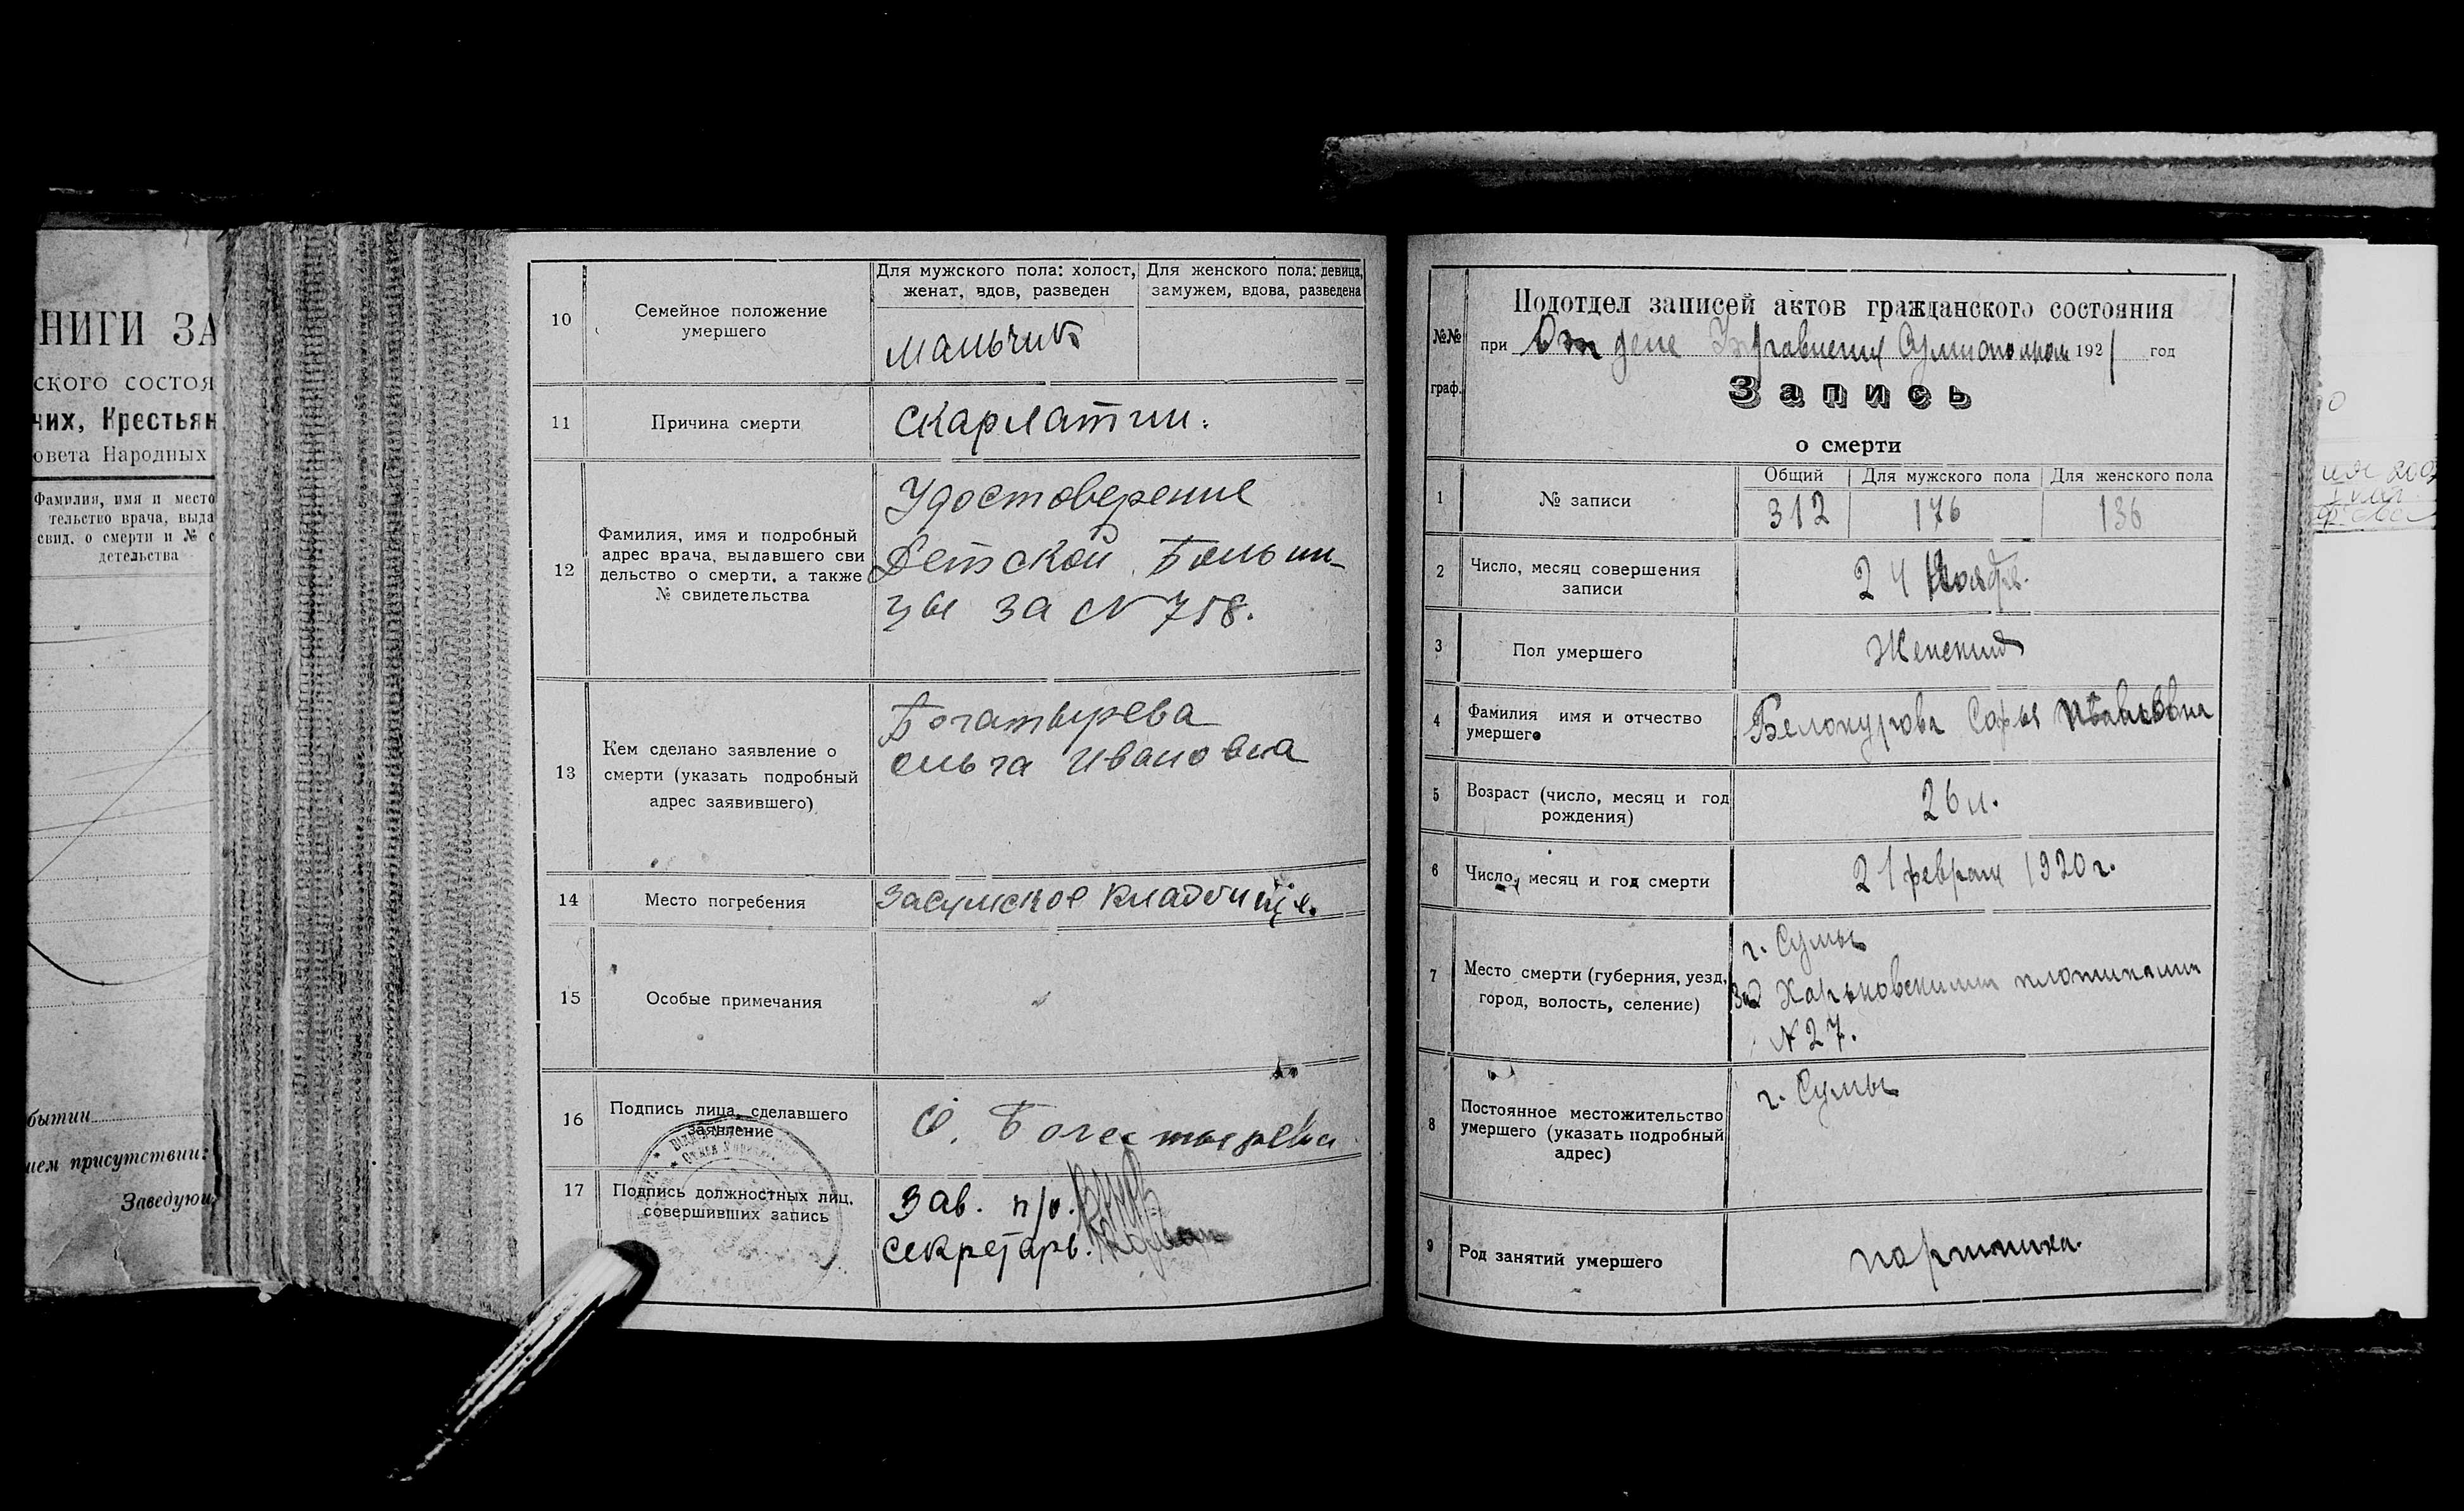 НИГИ ЗА
СКОГО СОСТОЯ
чих, Крестьян
овета Народных
Фамилия, имя и место
тельство врача, выда
свид. о смерти и № с
детельства
бытии
ием присутствии:
Заведующ
10
Семейное положение
умершего
Для мужского пола: холост,
женат, вдов, разведен
Для женского пола: девица,
замужем, вдова, разведена
мальчик
11
Причина смерти
скарлатин.
12
Фамилия, имя и подробный
адрес врача, выдавшего сви
дельство о смерти, а также
№ свидетельства
Удостоверение
Детской Больни-
цы за N 758.
13
Кем сделано заявление о
смерти (указать подробный
адрес заявившего)
Богатырева
ольга ивановна
14
Место погребения
Засумское кладбище.
15
Особые примечания
16
Подпись лица, сделавшего
заявление
О. Богатырева
17
Подпись должностных лиц,
совершивших запись
Зав. п/о.
секретарь.
№№
граф.
Подотдел записей актов гражданского состояния
при Отделе Управления 1921 год
Запись
о смерти
1
№ записи
Общий
Для мужского пола
Для женского пола
312
176
136
2
Число, месяц совершения
записи
24 Ноября.
3
Пол умершего
Женский
4
Фамилия имя и отчество
умершего
Белокурова Софья Ивановна
5
Возраст (число, месяц и год
рождения)
26 л.
6
Число, месяц и год смерти
21 февраля 1920 г.
7
Место смерти (губерния, уезд,
город, волость, селение)
г. Сумы
Харьковскими
N 27.
8
Постоянное местожительство
умершего (указать подробный
адрес)
г. Сумы
9
Род занятий умершего
портниха.